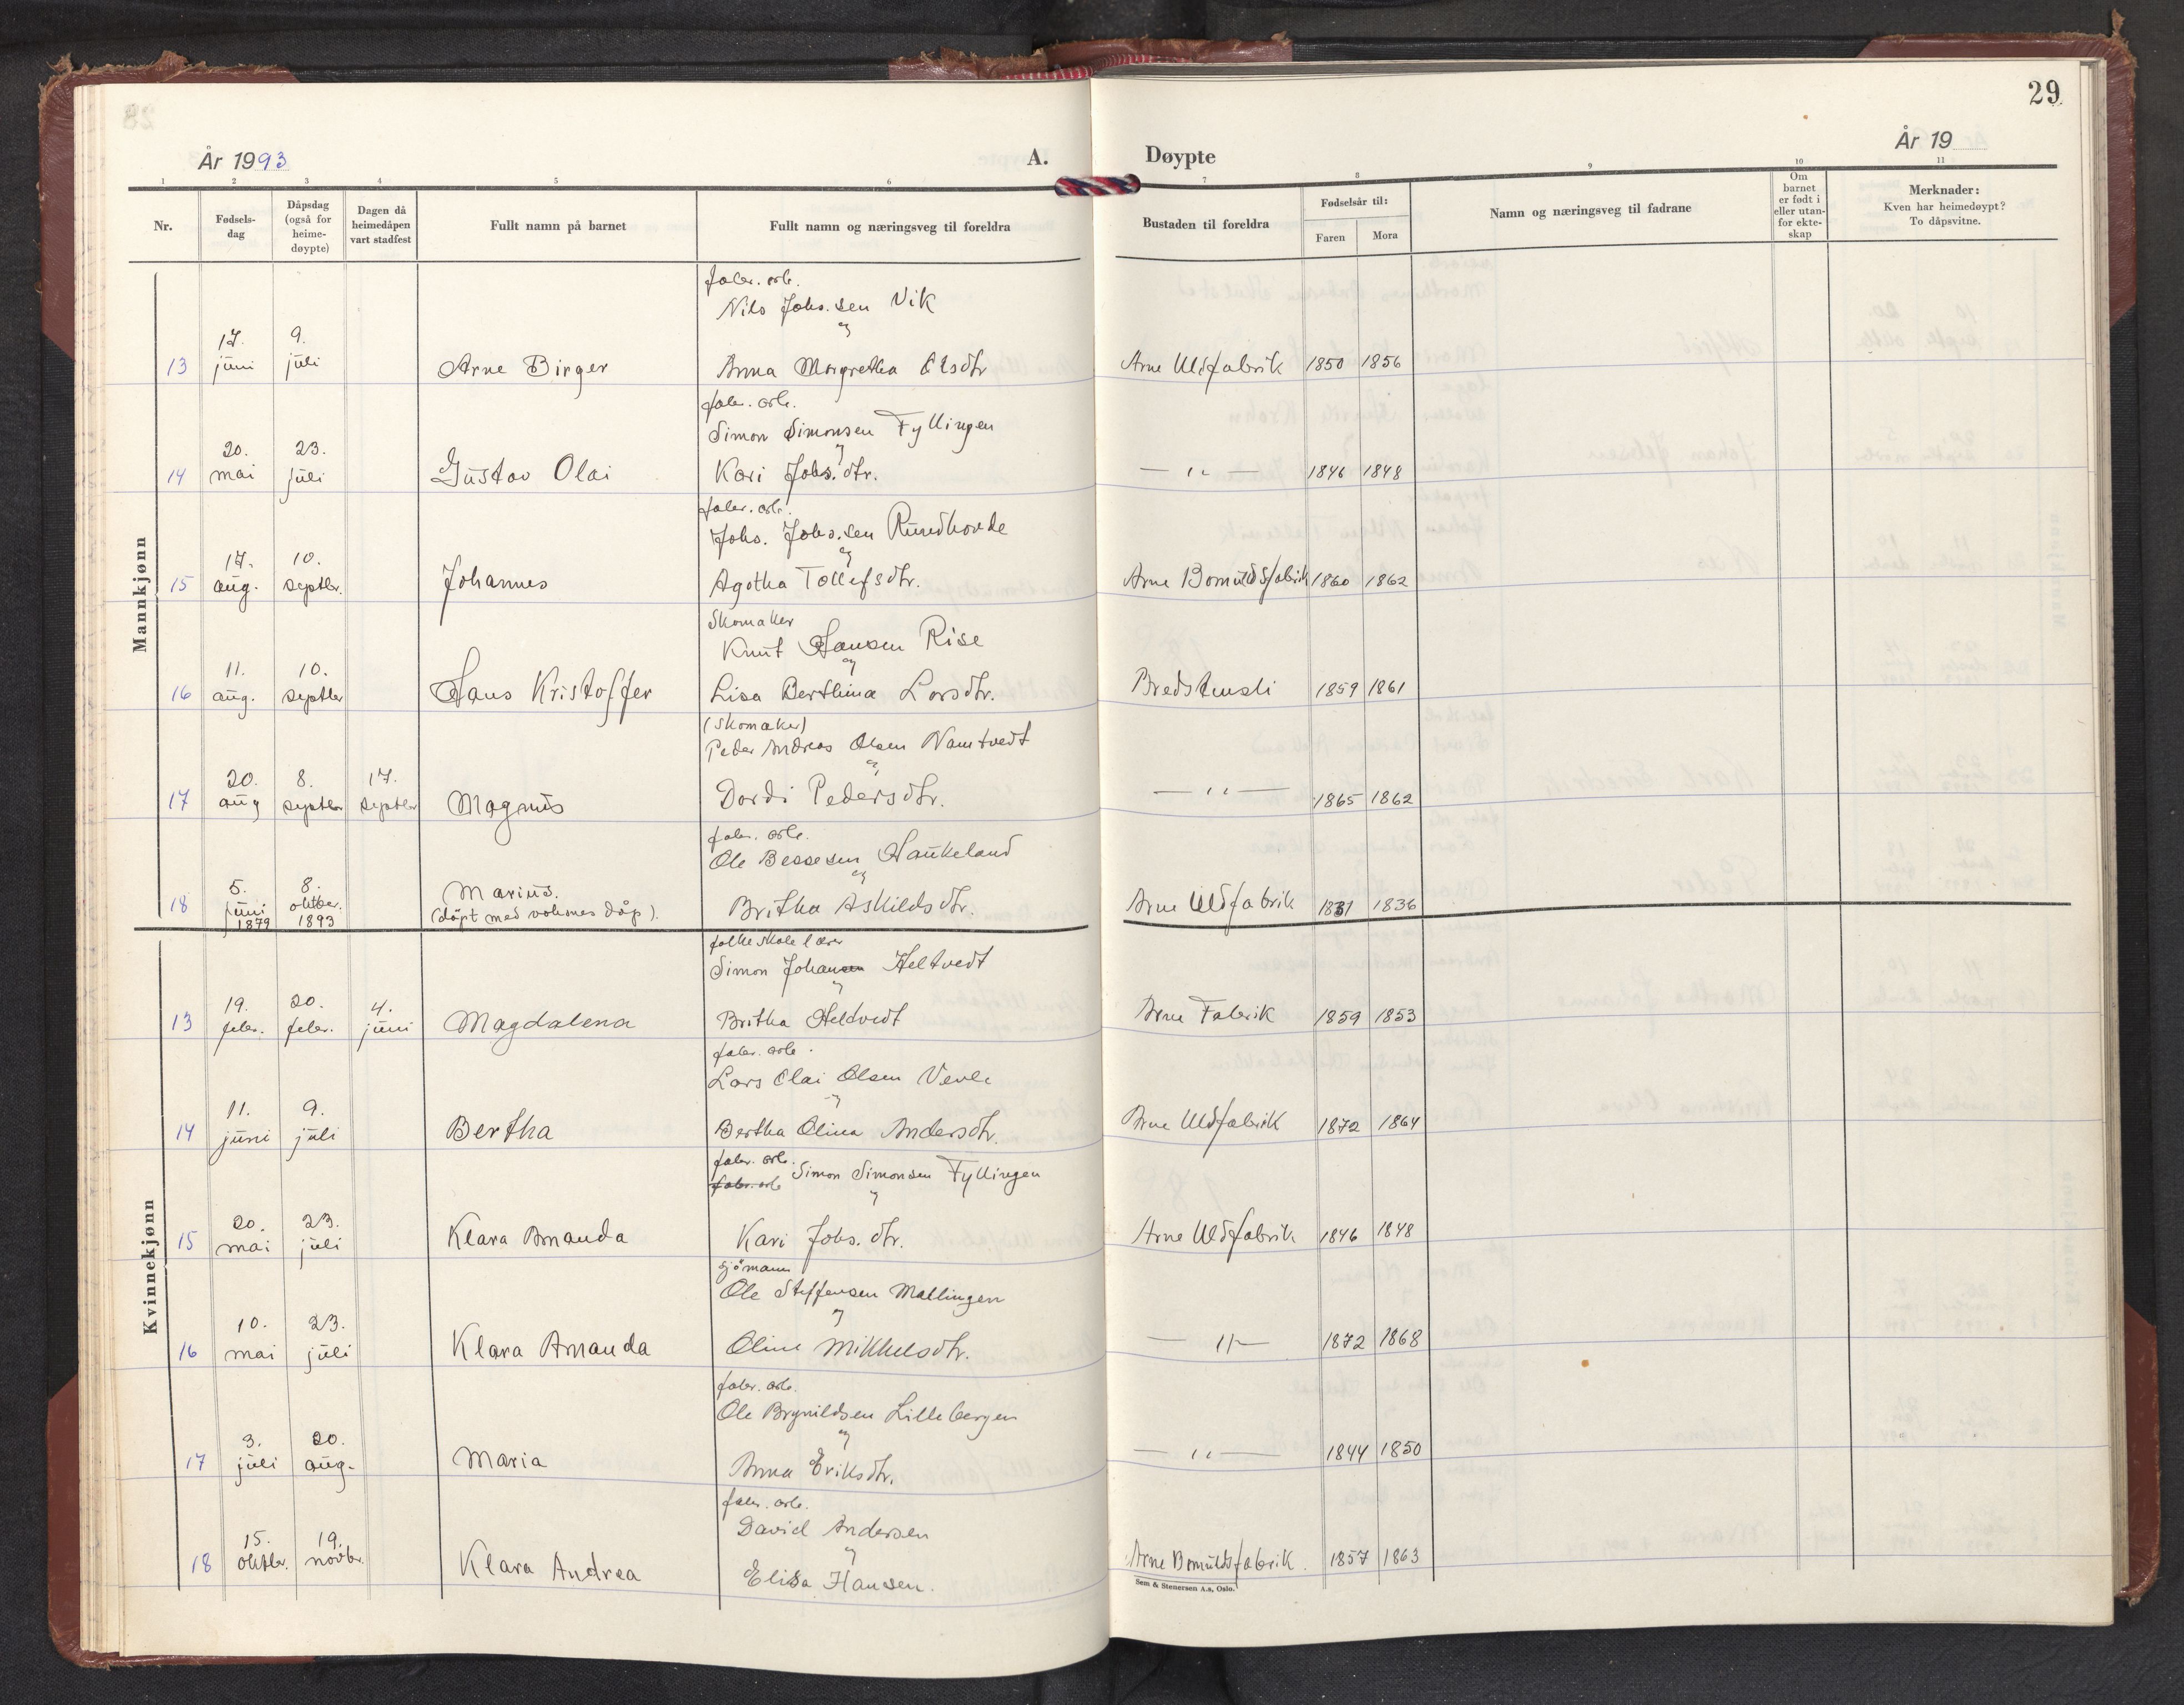 29
År 1993
A.
Døypte
År 19
1 2 3 4 5 6 7 8 9 10 11
Nr.
Fødsels-
dag
Dåpsdag
(også for
heime-
døypte)
Dagen då
heimedåpen
vart stadfest
Fullt namn på barnet
Fullt namn og næringsveg til foreldra
Bustaden til foreldra
Fødselsår til:
Faren
Mora
Namn og næringsveg til fadrane
Om
barnet
er født i
eller utan-
for ekte-
skap
Merknader:
Kven har heimedøypt?
To dåpsvitne.
Mannkjønn
fabr. arb.
Nils Johs.sen Vik
og
17. 9.
13 juni juli Arne Birger Anna Margretha Olsdtr Arne Uldfabrik 1850 1856
fabr. arb.
Simon Simonsen Fyllingen
og
20. 23.
14 mai juli Gustav Olai Kari Johs. dtr. — " — 1846 1848
fabr. arb.
Johs. Johs.sen Rundhovde
og
17. 10.
15 aug. septbr. Johannes Agatha Tollefsdtr. Arne Bomuldsfabrik 1860 1862
Skomaker
Knut Hansen Rise
og
11. 10.
16 aug. septbr Hans Kristoffer Lisa Berthina Larsdtr. Bredstensli 1859 1861
(Skomaker)
Peder Andreas Olsen Namtvedt
og
20. 8. 17.
17 aug septbr septbr Magnus Dordi Pedersdtr. — " — 1865 1862
fabr. arb.
Ole Bessesen Haukeland
og
5. 8. Marius.
18 juni oktbr. (döpt med voksnes dåp). Britha Askildsdtr. Arne Uldfabrik 1831 1836
1879 1893
Kvinnekjønn
folkeskolelærer
Simon Johansen Heltvedt
og
19. 20. 4.
13 febr. febr. juni Magdalena Britha Heldvedt Arne Fabrik 1859 1853
fabr. arb.
Lars Olai Olsen Vevle
og
11. 9.
14 juni juli Bertha Bertha Olina Andersdtr. Arne Uldfabrik 1872 1864
fabr. arb.
fabr. arb Simon Simonsen Fyllingen
og
20. 23.
15 mai juli Klara Amanda Kari Johs. dtr. Arne Uldfabrik 1846 1848
sjömann
Ole Steffensen Mellingen
og
10. 23.
16 mai juli Klara Amanda Oline Mikkelsdtr. — " — 1872 1868
fabr. arb.
Ole Brynildsen Lillebergen
og
3. 20.
17 juli aug. Maria Anna Eriksdtr. — " — 1844 1850
fabr. arb.
David Andersen
og
15. 19.
18 oktbr. novbr. Klara Andrea Elisa Hansen. Arne Bomuldsfabrik. 1857 1863
Sem & Stenersen A.s, Oslo.